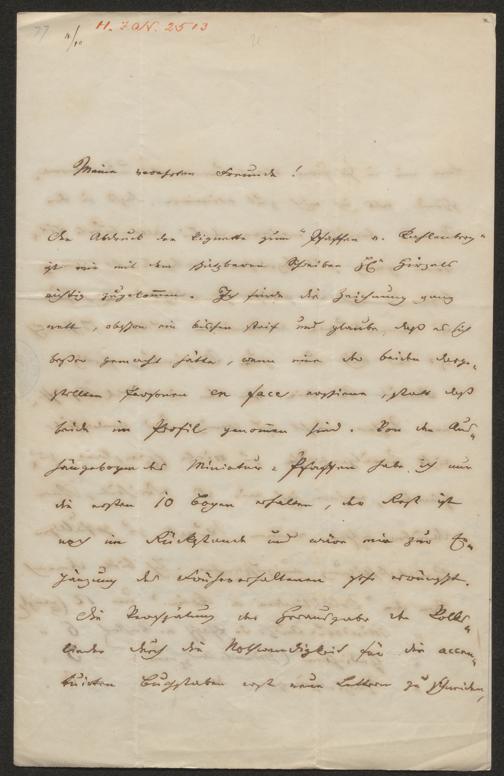 77
11/10
H. I. N. 2513
Meine verehrten Freunde!
Der Abdruck der Vignette zum "Pfaffen v. Kahlenberg"
ist mir mit dem Schreiben H Hirzels
richtig zugekommen. Ich finde die Zeichnung ganz
nett, obschon ein bischen steif und glaube, daß es sich
beßer gemacht hätte, wenn nur die beiden darge-
stellten Personen en face erschienen, statt daß
beide im Profil genommen sind. Von den Aus-
hängebogen des Miniatur-Pfaffen habe ich nur
die ersten 10 Bogen erhalten, der Rest ist
noch im Rückstande und wäre mir zur Er-
gänzung des Früher erhaltenen sehr erwünscht.
Die Verspätung der Herausgabe der Volks-
lieder durch die Nothwendigkeit für die accen-
tuirten Buchstaben erst neue Lettern zu schneiden,